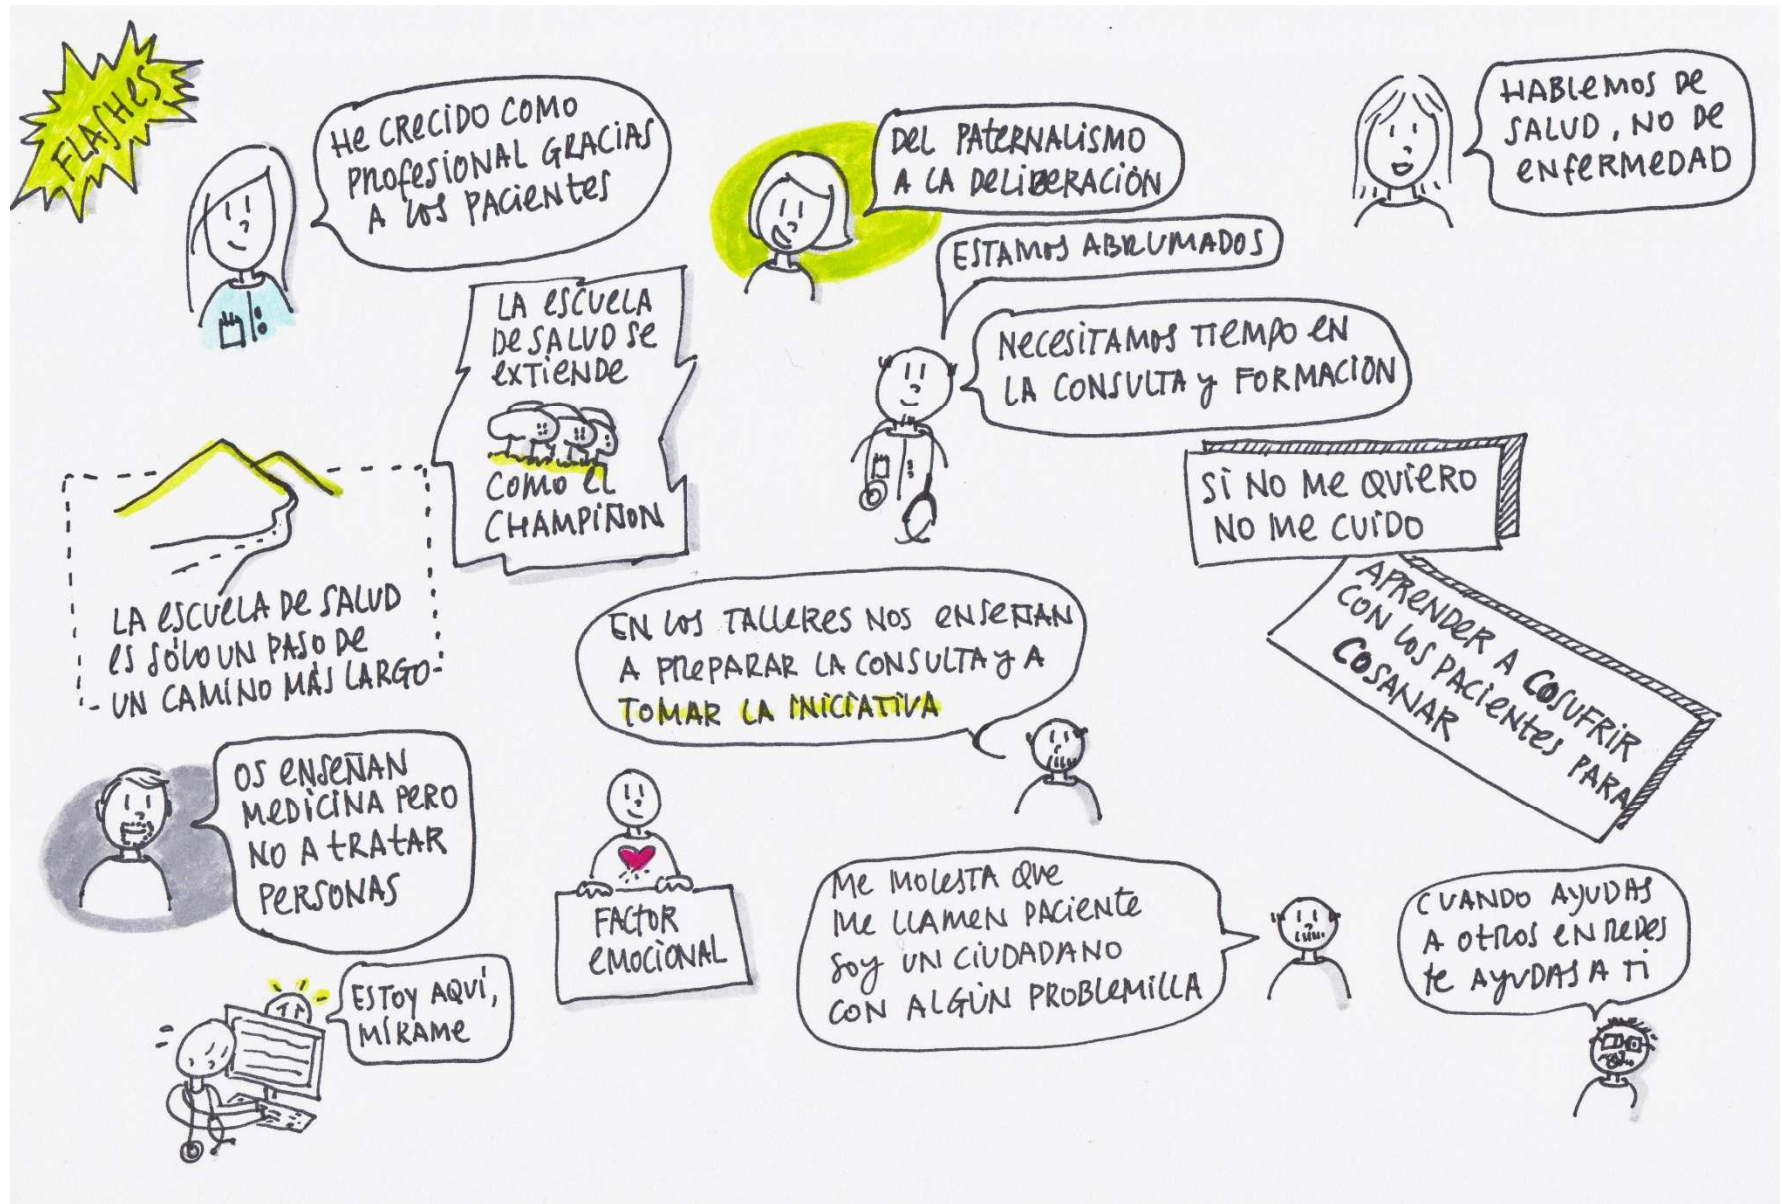 FLASHES
HE CRECIDO COMO
PROFESIONAL GRACIAS
A LOS PACIENTES
DEL PATERNALISMO
A LA DELIBERACIÓN
HABLEMOS DE
SALUD, NO DE
ENFERMEDAD
ESTAMOS ABRUMADOS
NECESITAMOS TIEMPO EN
LA CONSULTA Y FORMACIÓN
LA ESCUELA
DE SALUD SE
EXTIENDE
COMO EL
CHAMPIÑON
SI NO ME QUIERO
NO ME CUIDO
LA ESCUELA DE SALUD
ES SÓLO UN PASO DE
UN CAMINO MÁS LARGO
EN LOS TALLERES NOS ENSEÑAN
A PREPARAR LA CONSULTA Y A
TOMAR LA INICIATIVA
APRENDER A COSUFRIR
CON LOS PACIENTES PARA
COSANAR
OS ENSEÑAN
MEDICINA PERO
NO A TRATAR
PERSONAS
FACTOR
EMOCIONAL
ME MOLESTA QUE
ME LLAMEN PACIENTE
SOY UN CIUDADANO
CON ALGÚN PROBLEMILLA
CUANDO AYUDAS
A OTROS EN REDES
TE AYUDAS A TI
ESTOY AQUÍ,
MÍRAME